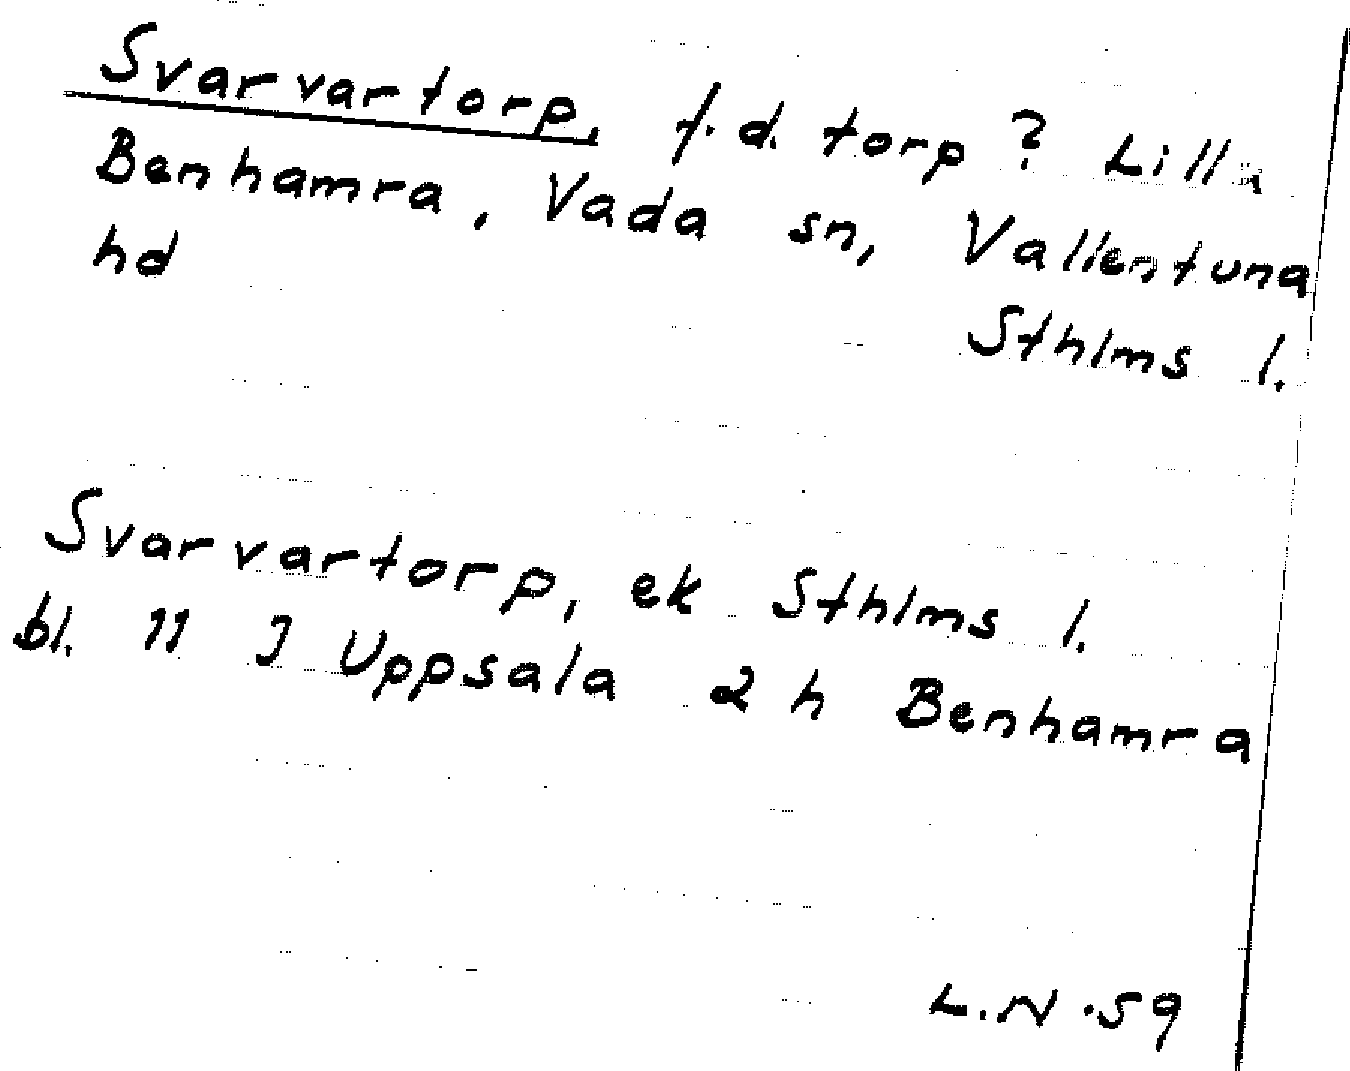 Svarvartorp, f.d. torp? Lilla
Benhamra, Vada sn, Vallentuna
hd
Sthlms l.
Svarvartorp, ek Sthlms l.
bl. 11 J Uppsala 2 h Benhamra
L.N.59